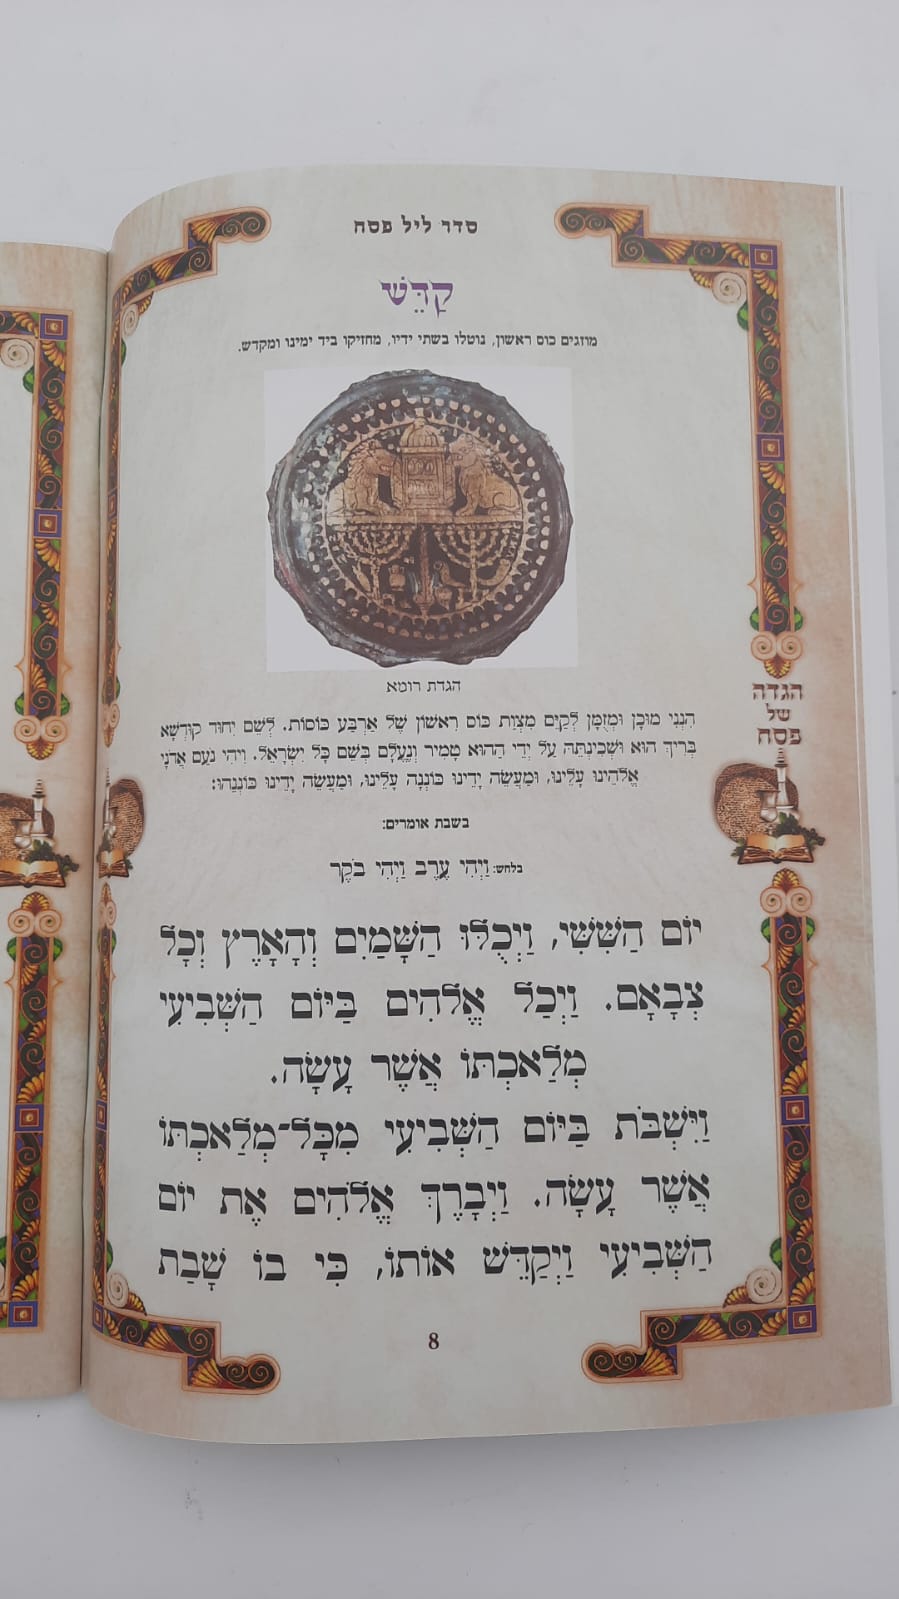 סדר ליל פסח
קַדֵּשׁ
מוזגים כוס ראשון, נוטלו בשתי ידיו, מחזיקו ביד ימינו ומקדש.
הגדת רומא
הִנְנִי מוּכָן וּמְזֻמָּן לְקַיֵּם מִצְוַת כּוֹס רִאשׁוֹן שֶׁל אַרְבַּע כּוֹסוֹת. לְשֵׁם יִחוּד קוּדְשָׁא
בְּרִיךְ הוּא וּשְׁכִינְתֵּהּ עַל יְדֵי הַהוּא טָמִיר וְנֶעְלָם בְּשֵׁם כָּל יִשְׂרָאֵל. וִיהִי נֹעַם אֲדֹנָי
אֱלֹהֵינוּ עָלֵינוּ, וּמַעֲשֵׂה יָדֵינוּ כּוֹנְנָה עָלֵינוּ, וּמַעֲשֵׂה יָדֵינוּ כּוֹנְנֵהוּ:
בשבת אומרים:
בלחש: וַיְהִי עֶרֶב וַיְהִי בֹקֶר
יוֹם הַשִּׁשִּׁי, וַיְכֻלּוּ הַשָּׁמַיִם וְהָאָרֶץ וְכָל
צְבָאָם. וַיְכַל אֱלֹהִים בַּיּוֹם הַשְּׁבִיעִי
מְלַאכְתּוֹ אֲשֶׁר עָשָׂה.
וַיִּשְׁבֹּת בַּיּוֹם הַשְּׁבִיעִי מִכָּל־מְלַאכְתּוֹ
אֲשֶׁר עָשָׂה. וַיְבָרֶךְ אֱלֹהִים אֶת יוֹם
הַשְּׁבִיעִי וַיְקַדֵּשׁ אוֹתוֹ, כִּי בוֹ שָׁבַת
הגדה
של
פסח
8